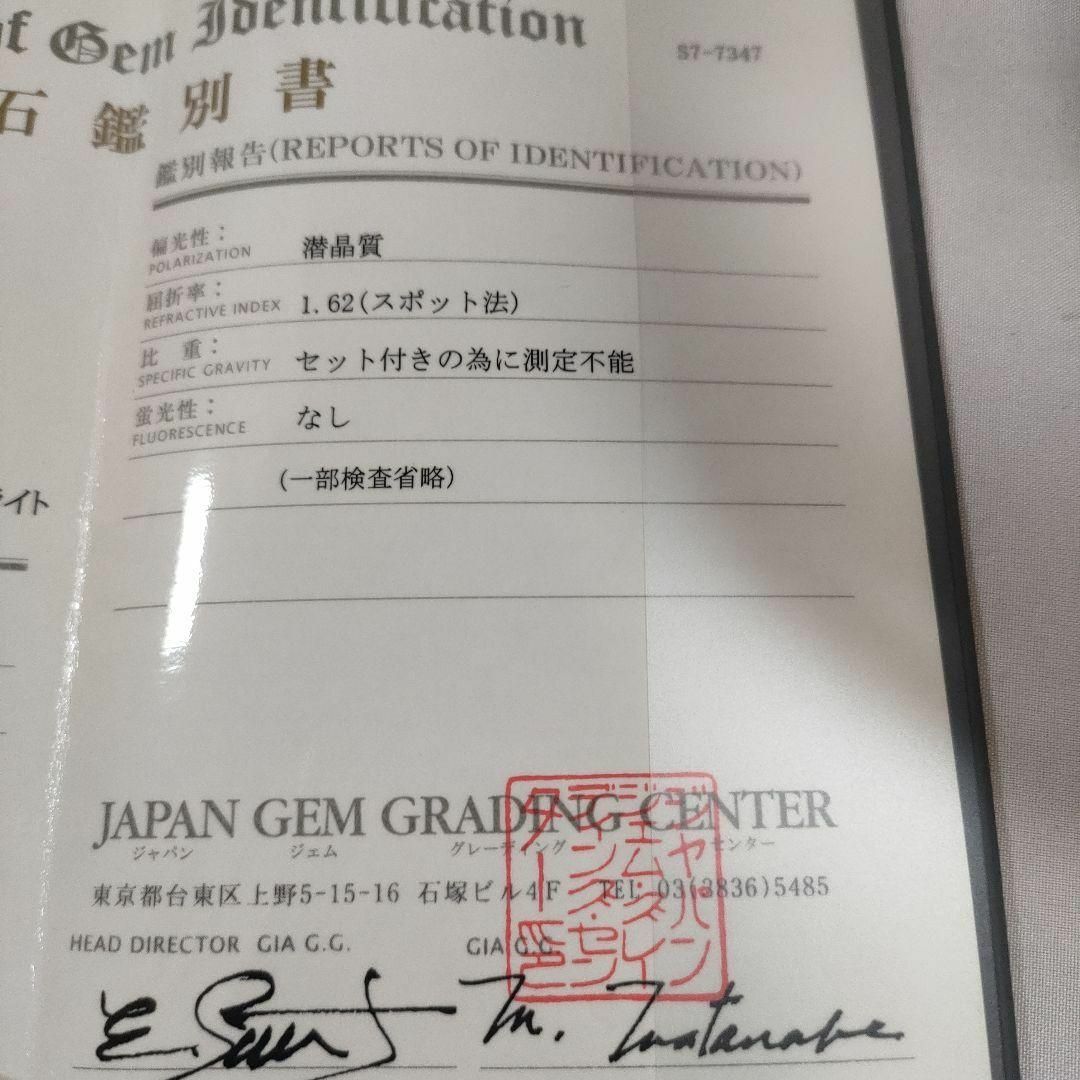 of Gem Identification
S7-7347
石鑑別書
鑑別報告(REPORTS OF IDENTIFICATION)
偏光性: 潜晶質
POLARIZATION
屈折率: 1.62(スポット法)
REFRACTIVE INDEX
比 重: セット付きの為に測定不能
SPECIFIC GRAVITY
蛍光性: なし
FLUORESCENCE
(一部検査省略)
ライト
JAPAN GEM GRADING CENTER
ジャパン ジェム グレーディング センター
東京都台東区上野5-15-16 石塚ビル4F TEL 03(3836)5485
HEAD DIRECTOR GIA G.G. GIA G.G.
ジャパン
ジェム・グレイ
ディング・セン
ター印
M. Watanabe